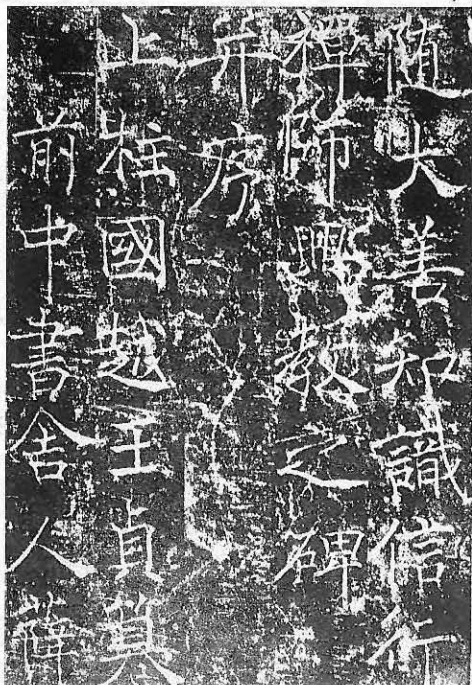 随大善知識信行
禪師興教之碑
并序
上柱國越王貞撰
前中書舍人薛